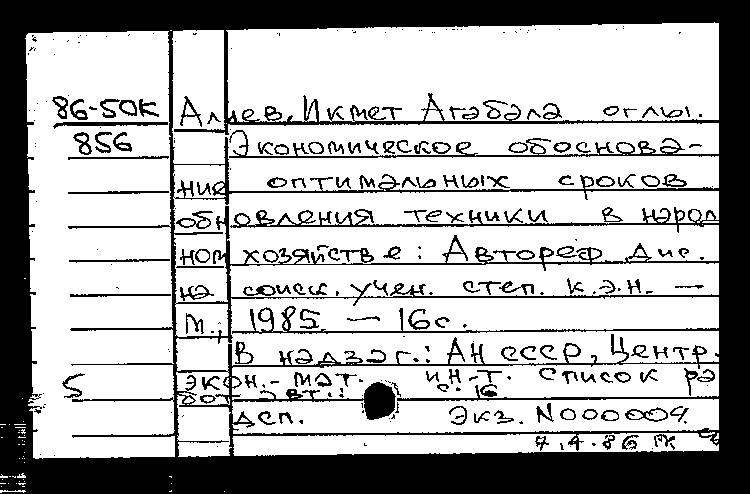 86-50К Алиев, Икмет Агабала оглы.
856 Экономическое обоснова-
ние оптимальных сроков
обновления техники в народ
ном хозяйстве: Автореф. дис.
на соиск. учен. степ. к.э.н. —
М., 1985 — 16с.
В надзаг.: АН СССР, Центр.
5 экон.-мат. ин-т. Список ра
бот авт.: с. 16
дсп. Экз. N000009.
7.4.86